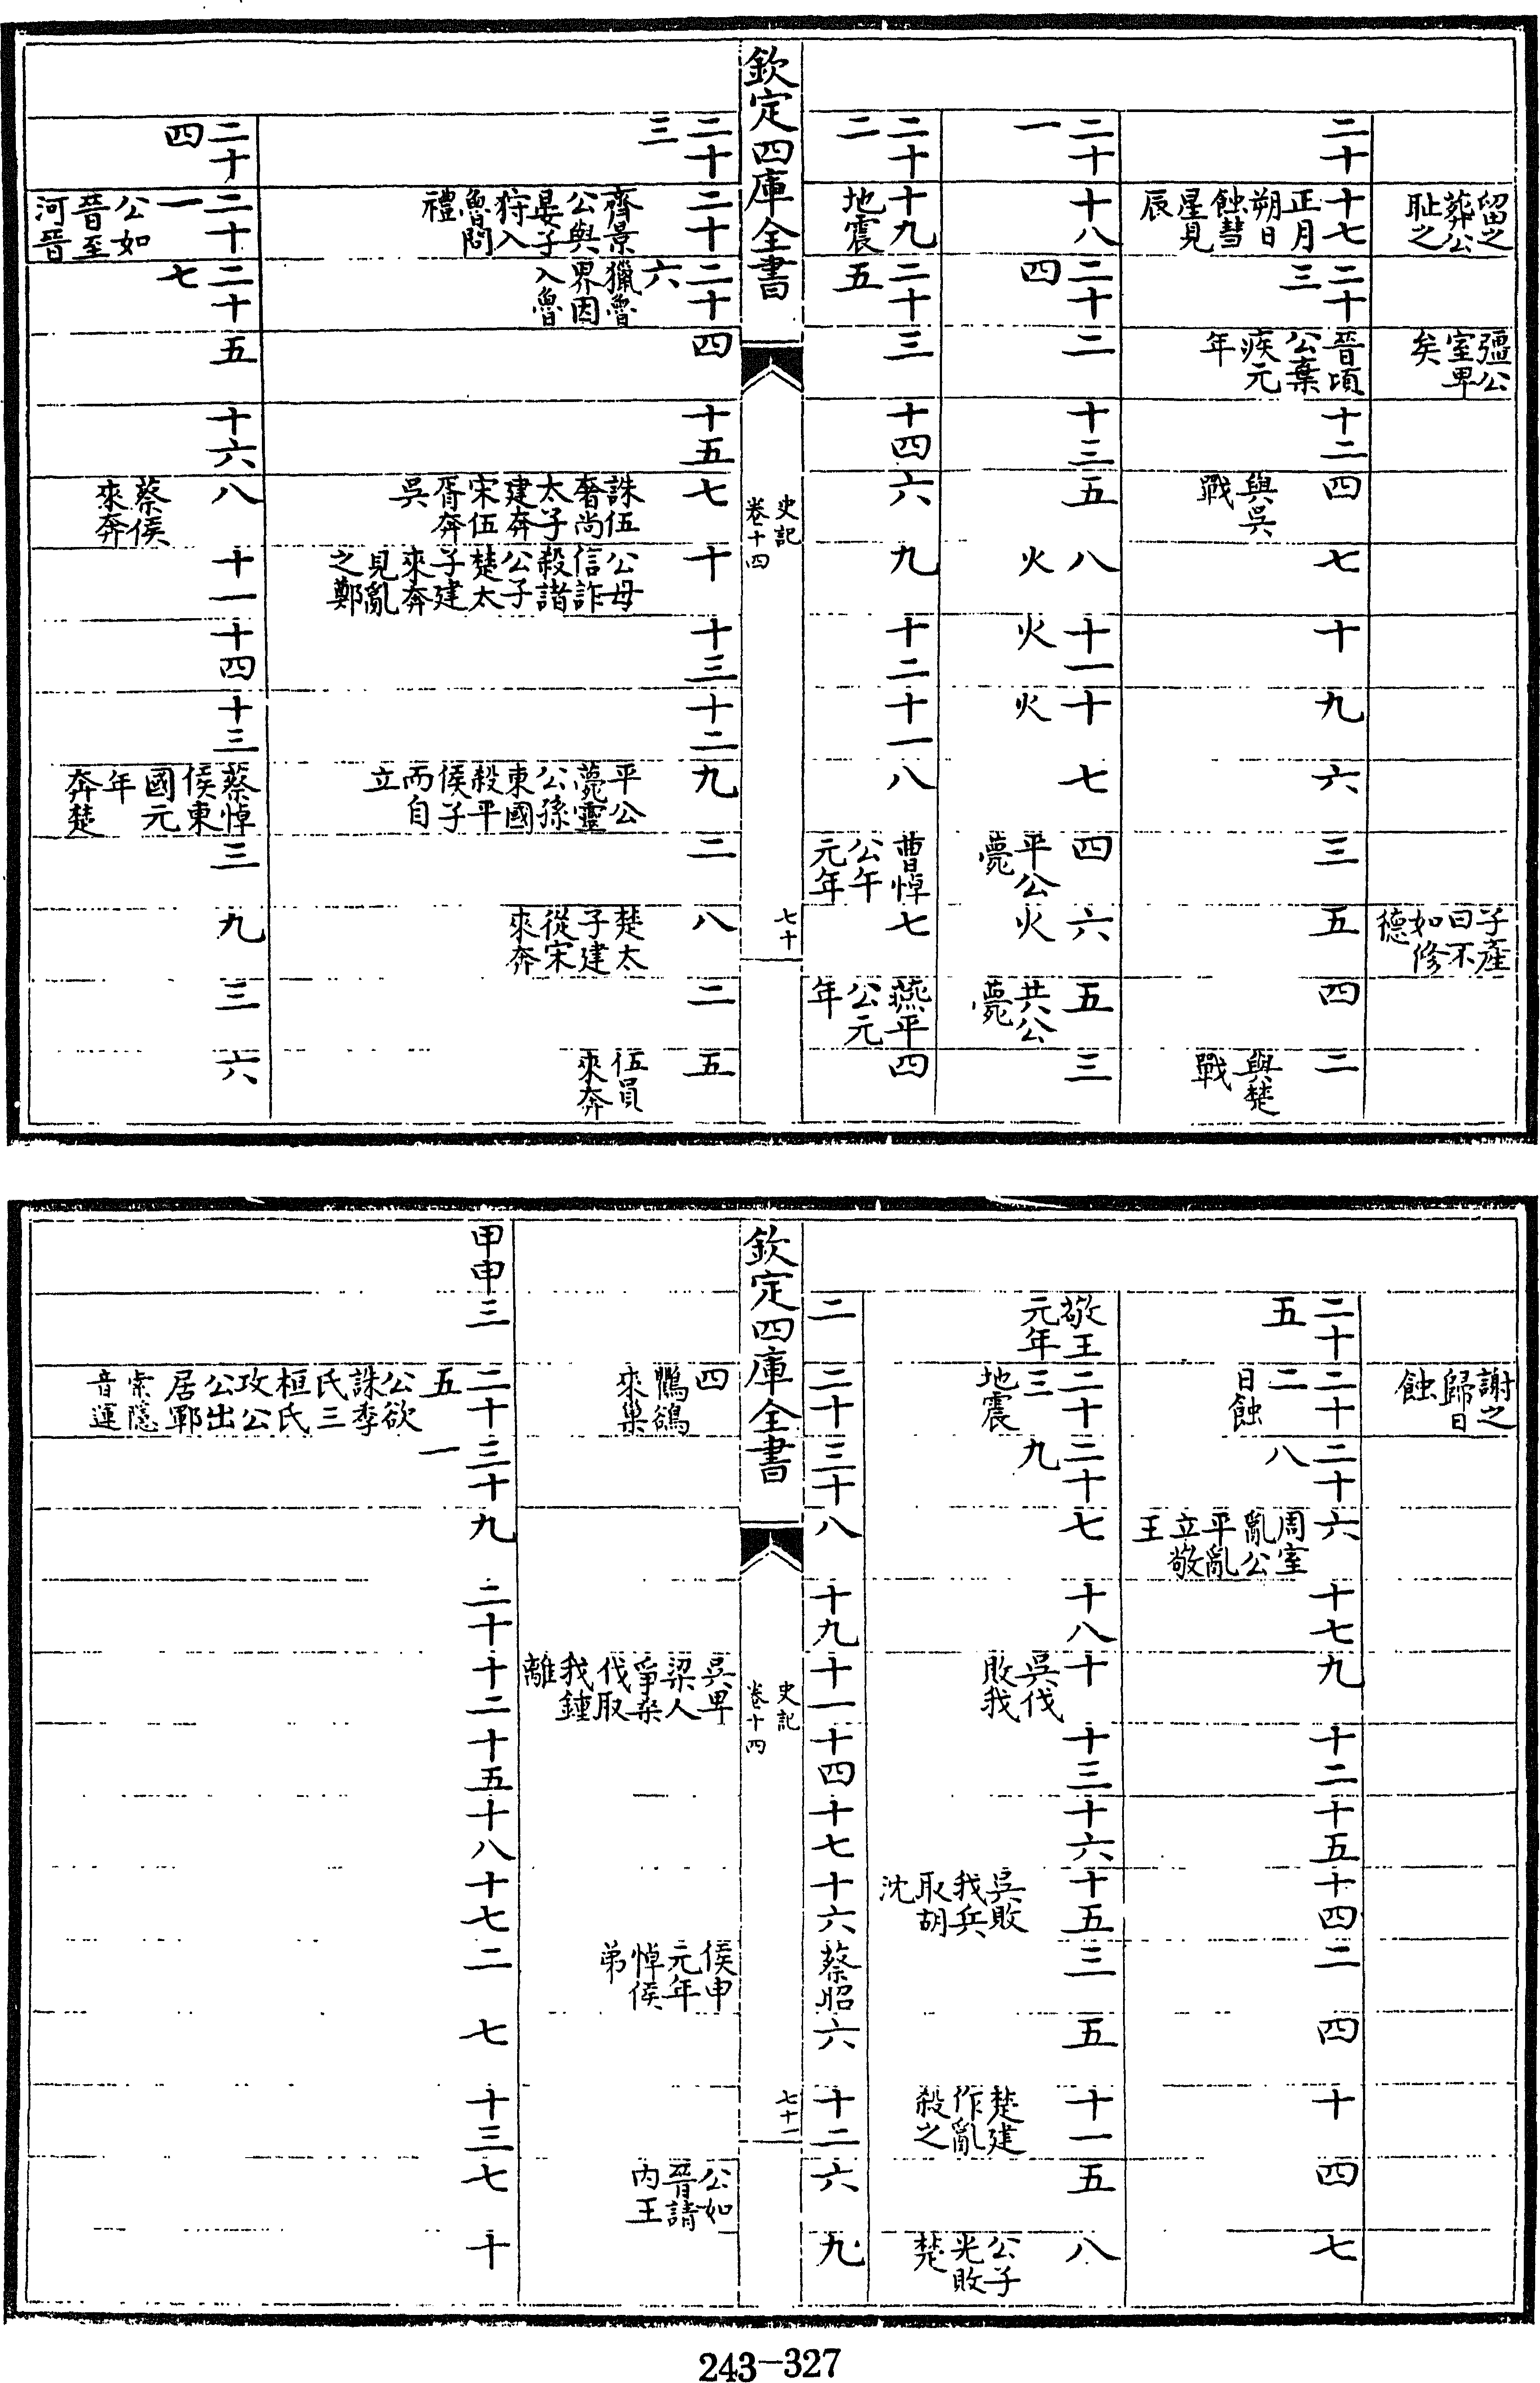 留之葬公恥之
彊公室卑矣
子產曰不如修德
二十
十七 正月朔日蝕彗星見辰
二十三
晉頃公棄疾元年
十二
四 與吳戰
七
十
九
六
三
五
四
二 與楚戰
二十一
十八
二十四
二
十三
五
八 火
十一 火
十 火
七
四 平公薨
六 火
五 共公薨
三
二十二
十九 地震
二十五
三
十四
六
九
十二
十一
八
曹悼公午元年
七
燕平公元年
四
欽定四庫全書
史記卷十四
七十
二十三
二十 齊景公與晏子狩入魯問禮
二十六 獵魯界因入魯
四
十五
七 誅伍奢尚太子建奔宋伍胥奔吳
十 公母信詐殺諸公子楚太子建來奔見亂之鄭
十三
十二
九 平公薨靈公孫東國殺平侯子而自立
二
八 楚太子建從宋來奔
二
五 伍員來奔
二十四
二十一 公如晉至河晉
二十七
五
十六
八 蔡侯來奔
十一
十四
十三
蔡悼侯東國元年奔楚
三
九
三
六
謝之歸日蝕
二十五
二十二 日蝕
二十八
六 周室亂公平亂立敬王
十七
九
十二
十五
十四
二
四
十
四
七
敬王元年
二十三 地震
二十九
七
十八
十 吳伐敗我
十三
十六
十五 吳敗我兵取胡沈
三
五
十一 楚建作亂殺之
五
八 公子光敗楚
二
二十
三十
八
十九
十一
十四
十七
十六
蔡昭
六
十二
六
九
欽定四庫全書
史記卷十四
七十一
四 鸜鵒來巢
吳卑梁人爭桑伐取我鍾離
侯申元年悼侯弟
公如晉請內王
甲申
三
二十五 公欲誅季氏三桓氏攻公公出居鄆索隱音運
三十一
九
二十
十二
十五
十八
十七
二
七
十三
七
十
243-327